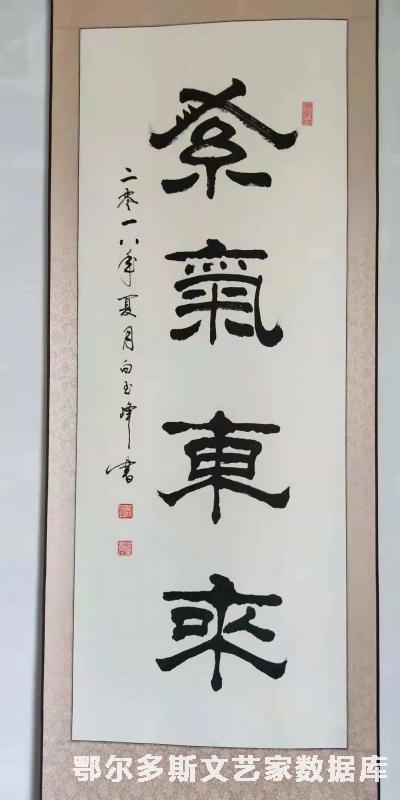 紫氣東來
二零一八年夏月白玉峰書
鄂尔多斯文艺家数据库